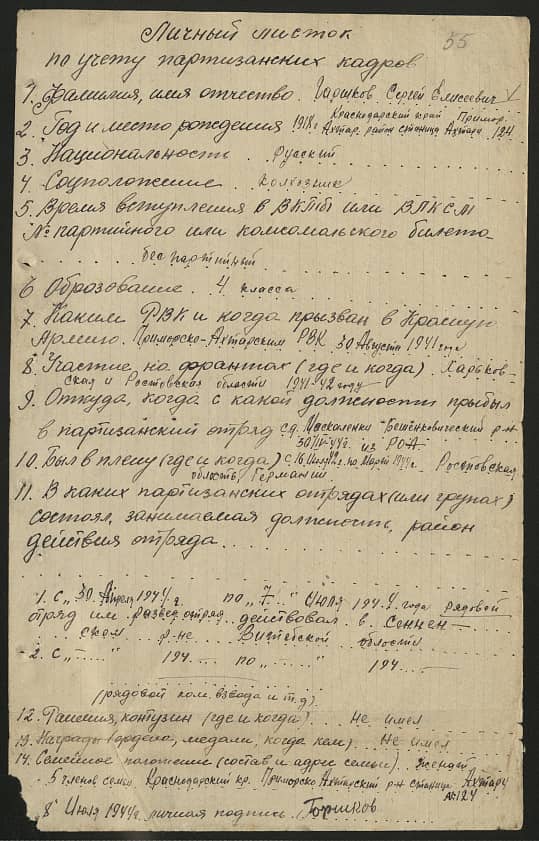 55
Личный листок
по учету партизанских кадров
1. Фамилия, имя отчество. Гаршков Сергей Елисеевич
Краснодарский край Примор.
2. Год и место рождения 1918г Ахтар. район станица Ахтари 124
3. Национальность. русский
4. Соцположение. колхозник
5. Время вступления в ВКПб или ВЛКСМ
№ партийного или комсомольского билета
беспартийный
6 Оброзование. 4 класса
7. Каким РВК и когда призван в Красную
Армию. Приморско-Ахтарским РВК 30 Августа 1941 года
8. Участие на франтах (где и когда). Харьков-
ская и Ростовская области 1941-42 году
9. Откуда, когда с какой должности прибыл
в партизанский отряд с д. Бешенковический р-н
30/IV-44г. из РОА
10. Был в плену (где и когда) с 16 Июля 42г. по Март 1944г. Ростовская
область, Германий
11. В каких партизанских отрядах (или групах)
состоял, занимаемая должность, район
действия отряда
1. с „30 Апреля 1944г по „7" Июля 1944 года рядовой
отряд им. развед отряд действовал в Сеннен-
ском р-не Витебской области
2. с „....." 194.... по „....." 194....
(рядовой ком. взвода и т.д)
12. Ранения, контузии (где и когда)... не имел
13. Награды (ордена, медали, когда кем)... Не имел
14. Семейное положение (состав и адрес семьи). женат
5 членов семьи Краснодарский кр. Приморско Ахтарский р-н станица Ахтари
№ 124
8 Июля 1944г. личная подпись. Горшков